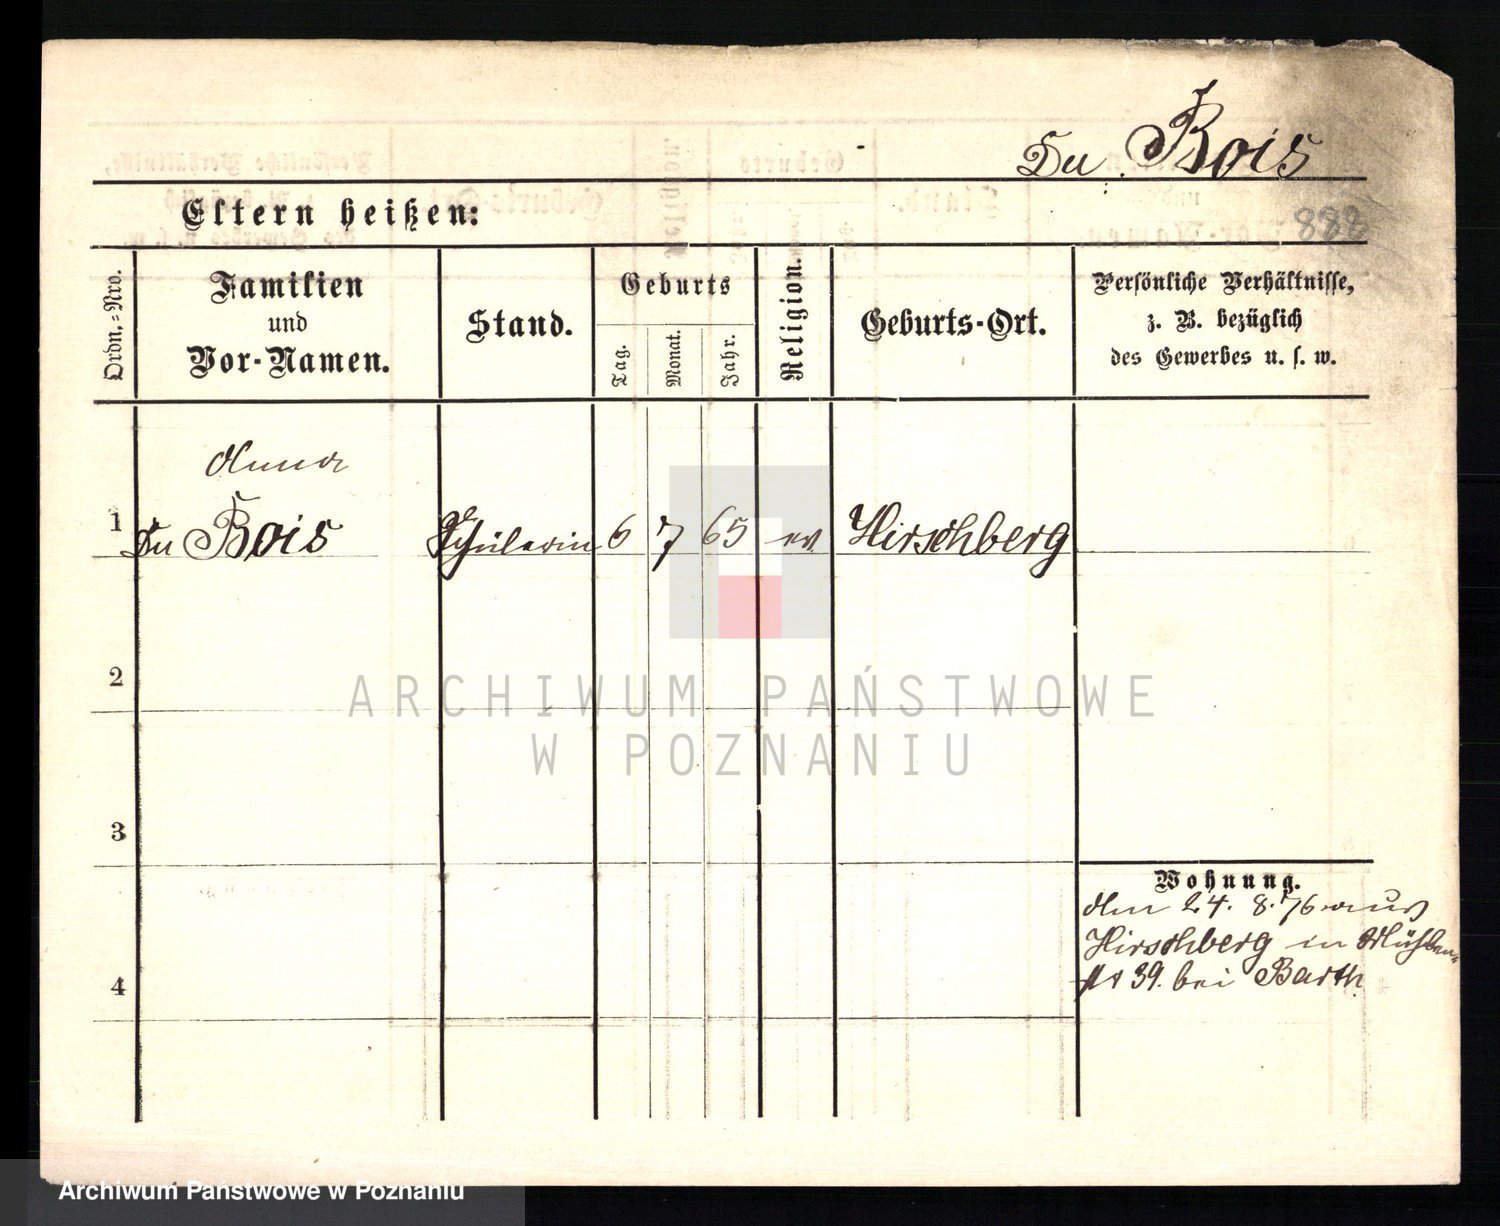 Du Bois
Eltern heißen:
888
Ordn.-Nro.
Familien
und
Vor-Namen.
Stand.
Geburts
Tag.
Monat.
Jahr.
Religion.
Geburts-Ort.
Persönliche Verhältnisse,
z. B. bezüglich
des Gewerbes u. s. w.
Anna
1 Du Bois Schülerin 6 7 65 ev Hirschberg
2
ARCHIWUM PAŃSTWOWE
W POZNANIU
3
Wohnung.
den 24. 8. 76 aus
Hirschberg in Mühlen-
str 39. bei Barth
4
Archiwum Państwowe w Poznaniu